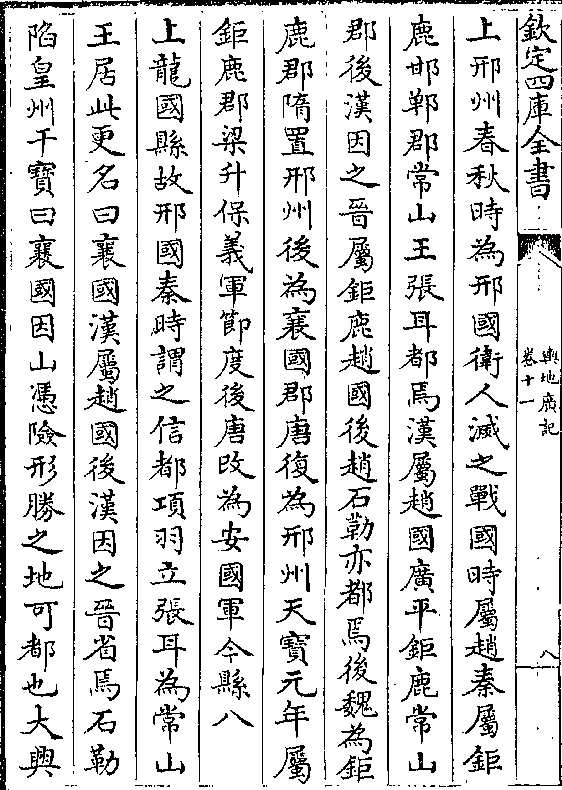 欽定四庫全書
輿地廣記
卷十一
八
上邢州春秋時為邢國衛人滅之戰國時屬趙秦屬鉅
鹿邯鄲郡常山王張耳都焉漢屬趙國廣平鉅鹿常山
郡後漢因之晉屬鉅鹿趙國後趙石勒亦都焉後魏為鉅
鹿郡隋置邢州後為襄國郡唐復為邢州天寶元年屬
鉅鹿郡梁升保義軍節度後唐改為安國軍今縣八
上龍國縣故邢國秦時謂之信都項羽立張耳為常山
王居此更名曰襄國漢屬趙國後漢因之晉省焉石勒
陷皇州干寶曰襄國因山憑險形勝之地可都也大興